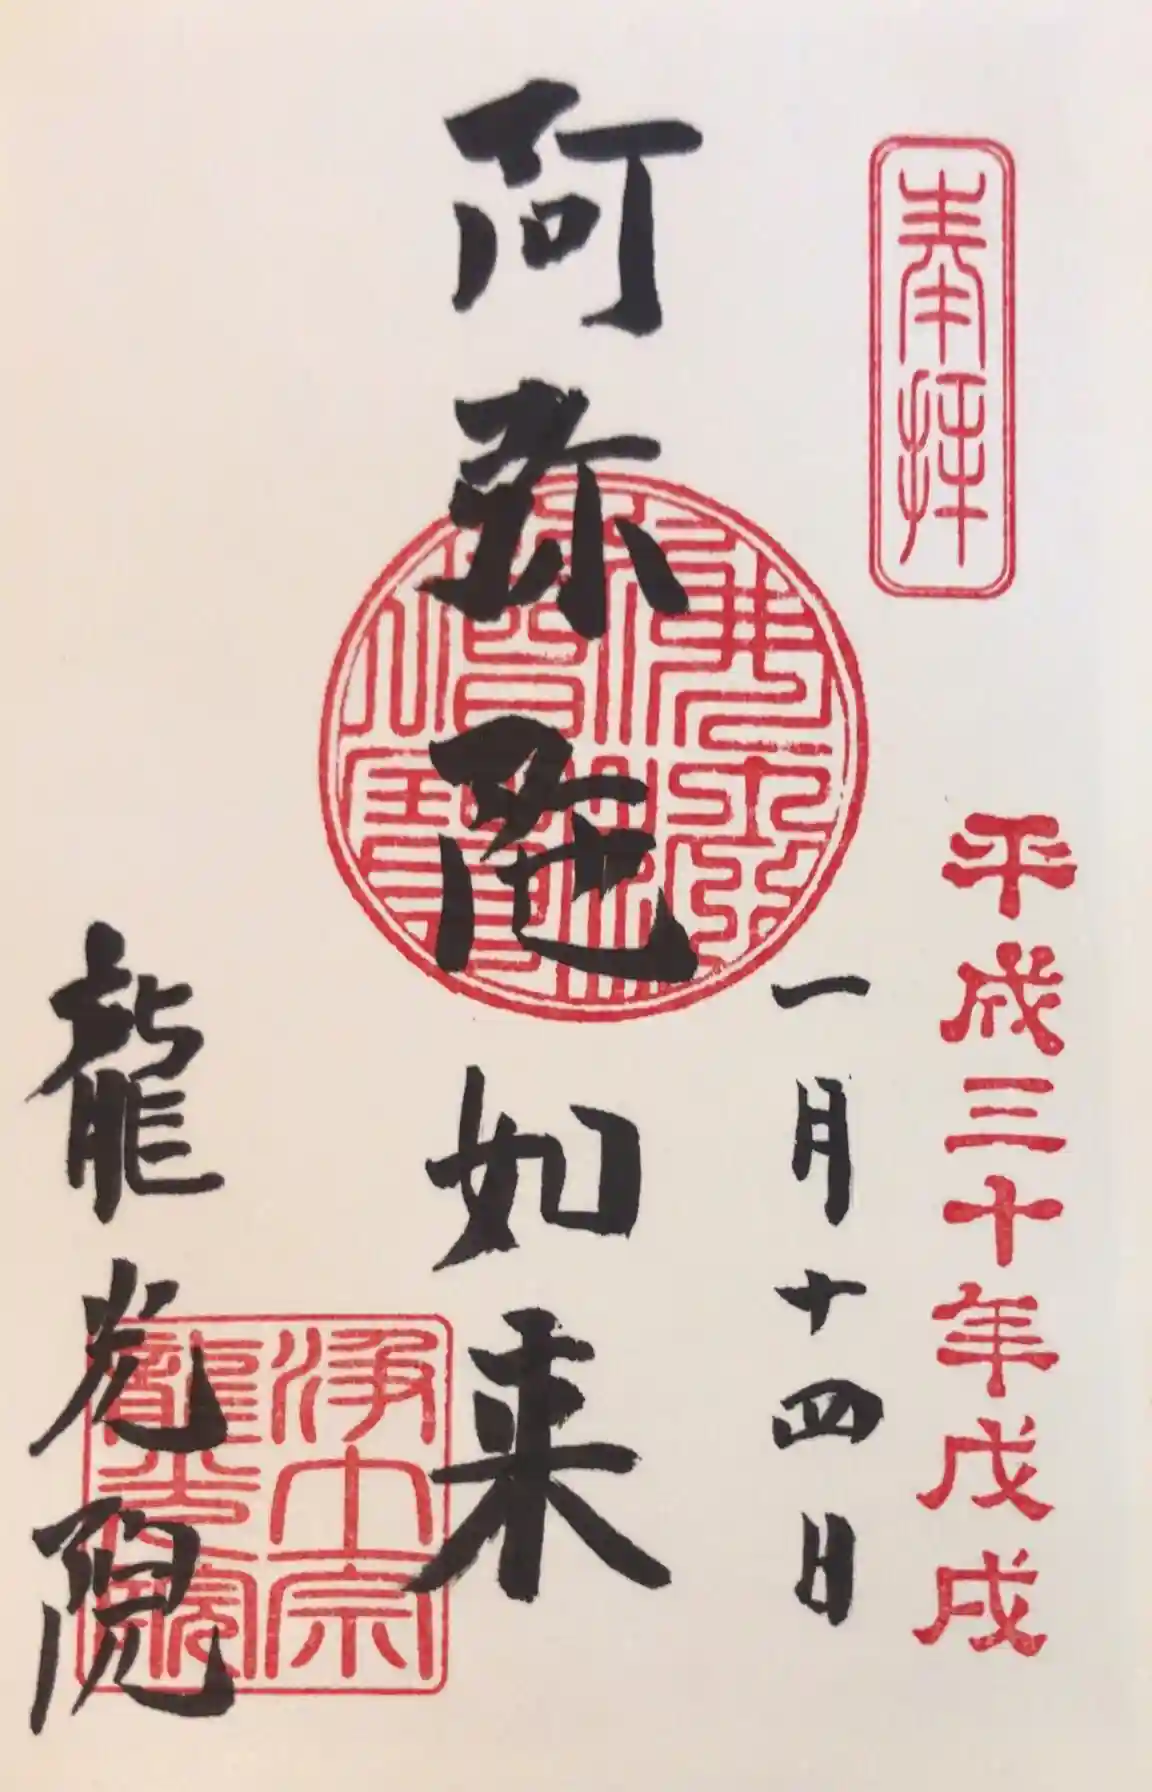 奉拝
平成三十年戊戌
一月十四日
阿弥陀如来
佛法僧寳
龍光院
浄土宗
龍光院